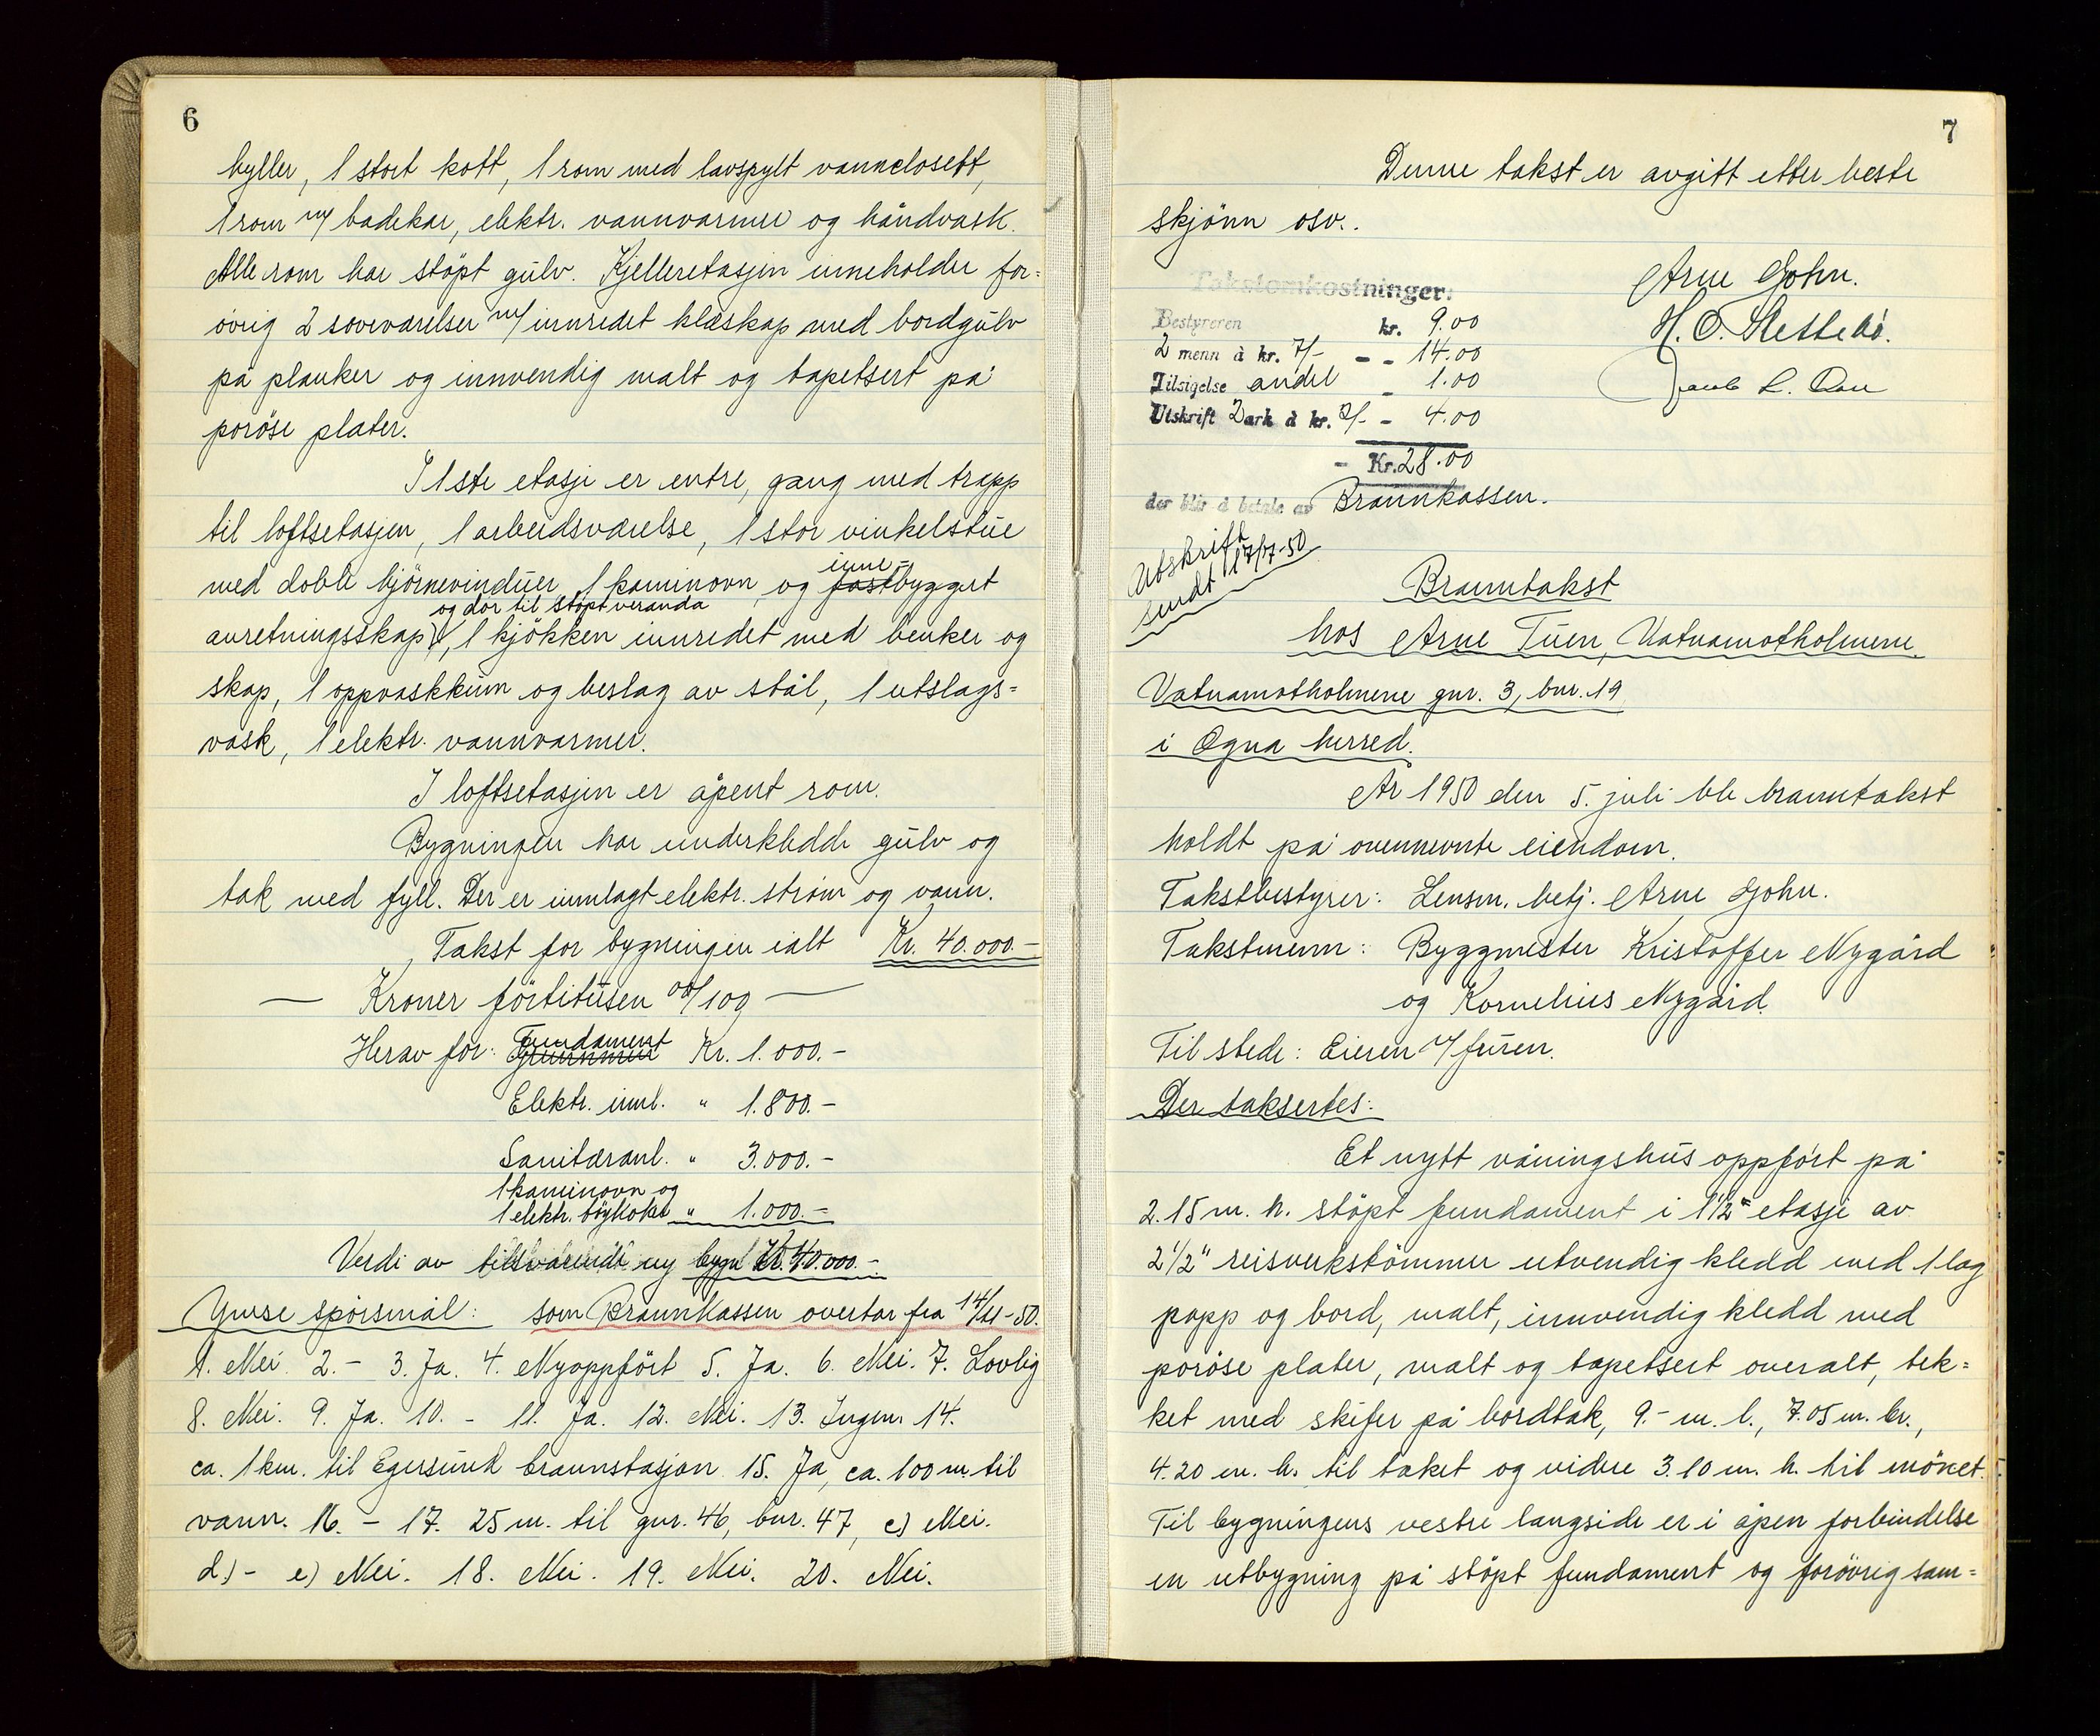 6
hyller, 1 stort kott, 1 rom med lavspylt vannclosett,
1 rom m/ badekar, elektr. vannvarmer og håndvask.
Alle rom har støpt gulv. Kjelleretasjen inneholder for=
øvrig 2 soveværelser m/ innredet klæskap med bordgulv
på planker og innvendig malt og tapetsert på
porøse plater.
I 1ste etasje er entre, gang med trapp
til loftsetasjen, 1 arbeidsværelse, 1 stor vinkelstue
inne-
med doble hjørnevinduer, 1 kaminovn, og fastbygget
og dør til støpt veranda
anretningsskap, 1 kjøkken innredet med benker og
skap, 1 oppvaskkum og beslag av stål, 1 utslags=
vask, 1 elektr. vannvarmer.
I loftsetasjen er åpent rom.
Bygningen har underkledde gulv og
tak med fyll. Der er innlagt elektr. strøm og vann.
Takst for bygningen ialt Kr. 40.000.-
— Kroner førtitusen 00/100 —
Fundament
Herav for: Grunnmur Kr. 1.000.-
Elektr. innl. " 1.800.-
Sanitæranl. " 3.000.-
1 kaminovn og
1 elektr. " 1.000.-
Verdi av tilsvarende ny bygn Kr. 40.000.-
Ymse spørsmål: som Brannkassen overtar fra 14/11-50.
1. Nei. 2. - 3. Ja. 4. Nyoppført 5. Ja. 6. Nei. 7. Lovlig
8. Nei. 9. Ja. 10. - 11. Ja. 12. Nei. 13. Ingen 14.
ca. 1 km. til Egersund brannstasjon 15. Ja, ca. 100 m til
vann. 16. - 17. 25 m. til gnr. 46, bnr. 47, c) Nei.
d) - e) Nei. 18. Nei. 19. Nei. 20. Nei.
7
Denne takst er avgitt etter beste
skjønn osv..
Takstomkostninger:
Bestyreren kr. 9.00
2 menn à kr. 7/- - - 14.00
Tilsigelse andel - 1.00
Utskrift 2 ark à kr. 2/- - 4.00
- Kr. 28.00
der blir å betale av Brannkassen.
Arne Gohn.
H. O. Slettebø.
Jacob L.
Utskrift
sendt 17/7-50
Branntakst
hos Arne Tuen, Vatnamotholmene.
Vatnamotholmene gnr. 3, bnr. 19
i Ogna herred.
År 1950 den 5. juli ble branntakst
holdt på ovennevnte eiendom.
Takstbestyrer: Lensm. betj. Arne Gohn.
Takstmenn: Byggmester Kristoffer Nygård
og Kornelius Nygård.
Til stede: Eieren m/ fruen.
Der taksertes:
Et nytt våningshus oppført på
2.15 m. h. støpt fundament i 1 1/2 etasje av
2 1/2" reisverkstømmer utvendig kledd med 1 lag
papp og bord, malt, innvendig kledd med
porøse plater, malt og tapetsert overalt, tek=
ket med skifer på bordtak, 9.- m. l., 7.05 m. br.,
4.20 m. h. til taket og videre 3.10 m. h. til mønet.
Til bygningens vestre langside er i åpen forbindelse
en utbygning på støpt fundament og forøvrig sam=